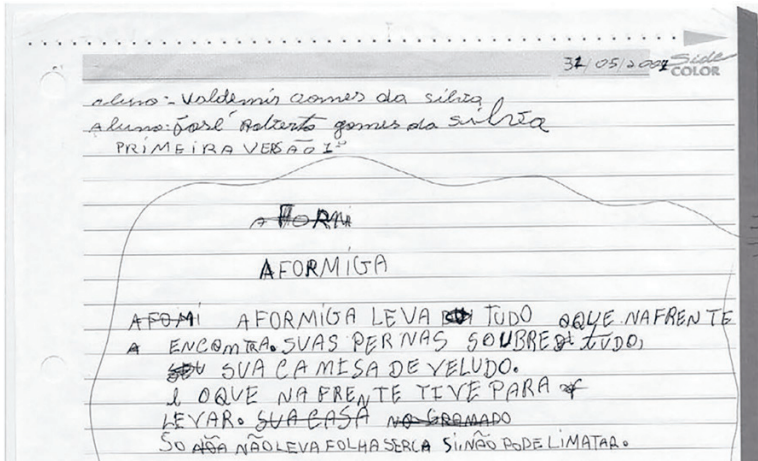 31/05/2001 Side COLOR
aluno:- Valdemir Gomes da silva
Aluno: José Roberto gomes da silvia
PRIMEIRA VERSÃO 1ª
A FORMI
AFORMIGA
AFOMI AFORMIGA LEVA TUDO OQUE NAFRENTE
A ENCOMTRA. SUAS PERNAS SOUBRE TUDO,
SUA CAMISA DE VELUDO.
l OQUE NA FRENTE TIVE PARA
LEVAR. SUA CASA NO GRAMADO
SO NÃO LEVA FOLHA SERCA SINÃO PODE LIMATAR.